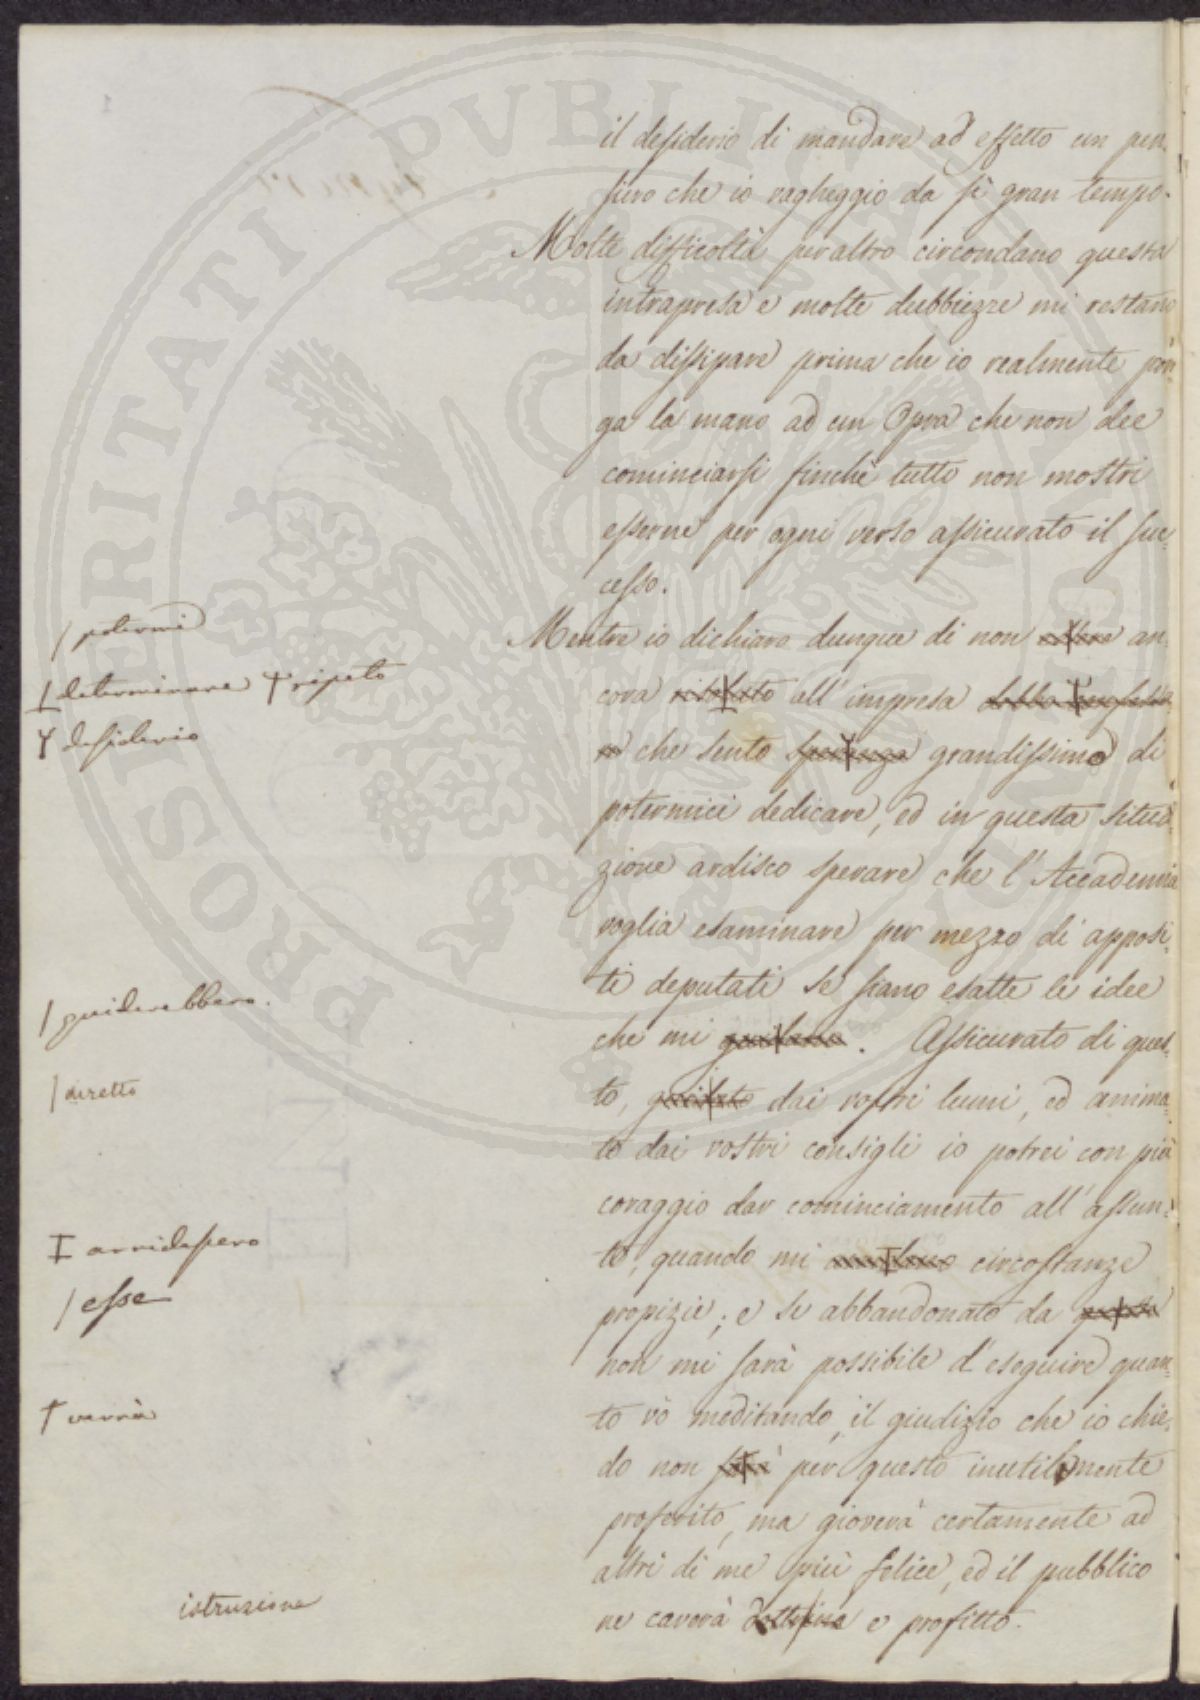 il desiderio di mandare ad effetto un pen-
siero che io vagheggio da sì gran tempo.
Molte difficoltà peraltro circondano questa
intrapresa e molte dubbiezze mi restano
da dissipare prima che io realmente pon-
ga la mano ad un Opra che non dee
cominciarsi finchè tutto non mostri
esserne per ogni verso assicurato il suc-
cesso.
Mentre io dichiaro dunque di non an-
/ potermi
cora risoluto all' impresa
I determinare Ϯ ripeto
che sento speranza grandissimo di
Ỵ desiderio
potermici dedicare, ed in questa situa-
zione ardisco sperare che l'Accademia
voglia esaminare per mezzo di apposi-
ti deputati se siano esatte le idee
che mi guidano. Assicurato di ques-
/ guiderebbero.
to, guidato dai vostri lumi, ed anima-
/ diretto
to dai vostri consigli io potrei con più
coraggio dar cominciamento all' assun-
to, quando mi circostanze
I arridessero
propizie; e se abbandonato da
/ esse
non mi sarà possibile d'eseguire quan-
to vò meditando, il giudizio che io chie-
† verrà
do non sarà per questo inutilmente
proferito, ma gioverà certamente ad
altri di me più felice, ed il pubblico
ne caverà dottrina e profitto.
istruzione
PROSPERITATI PUBLICAE